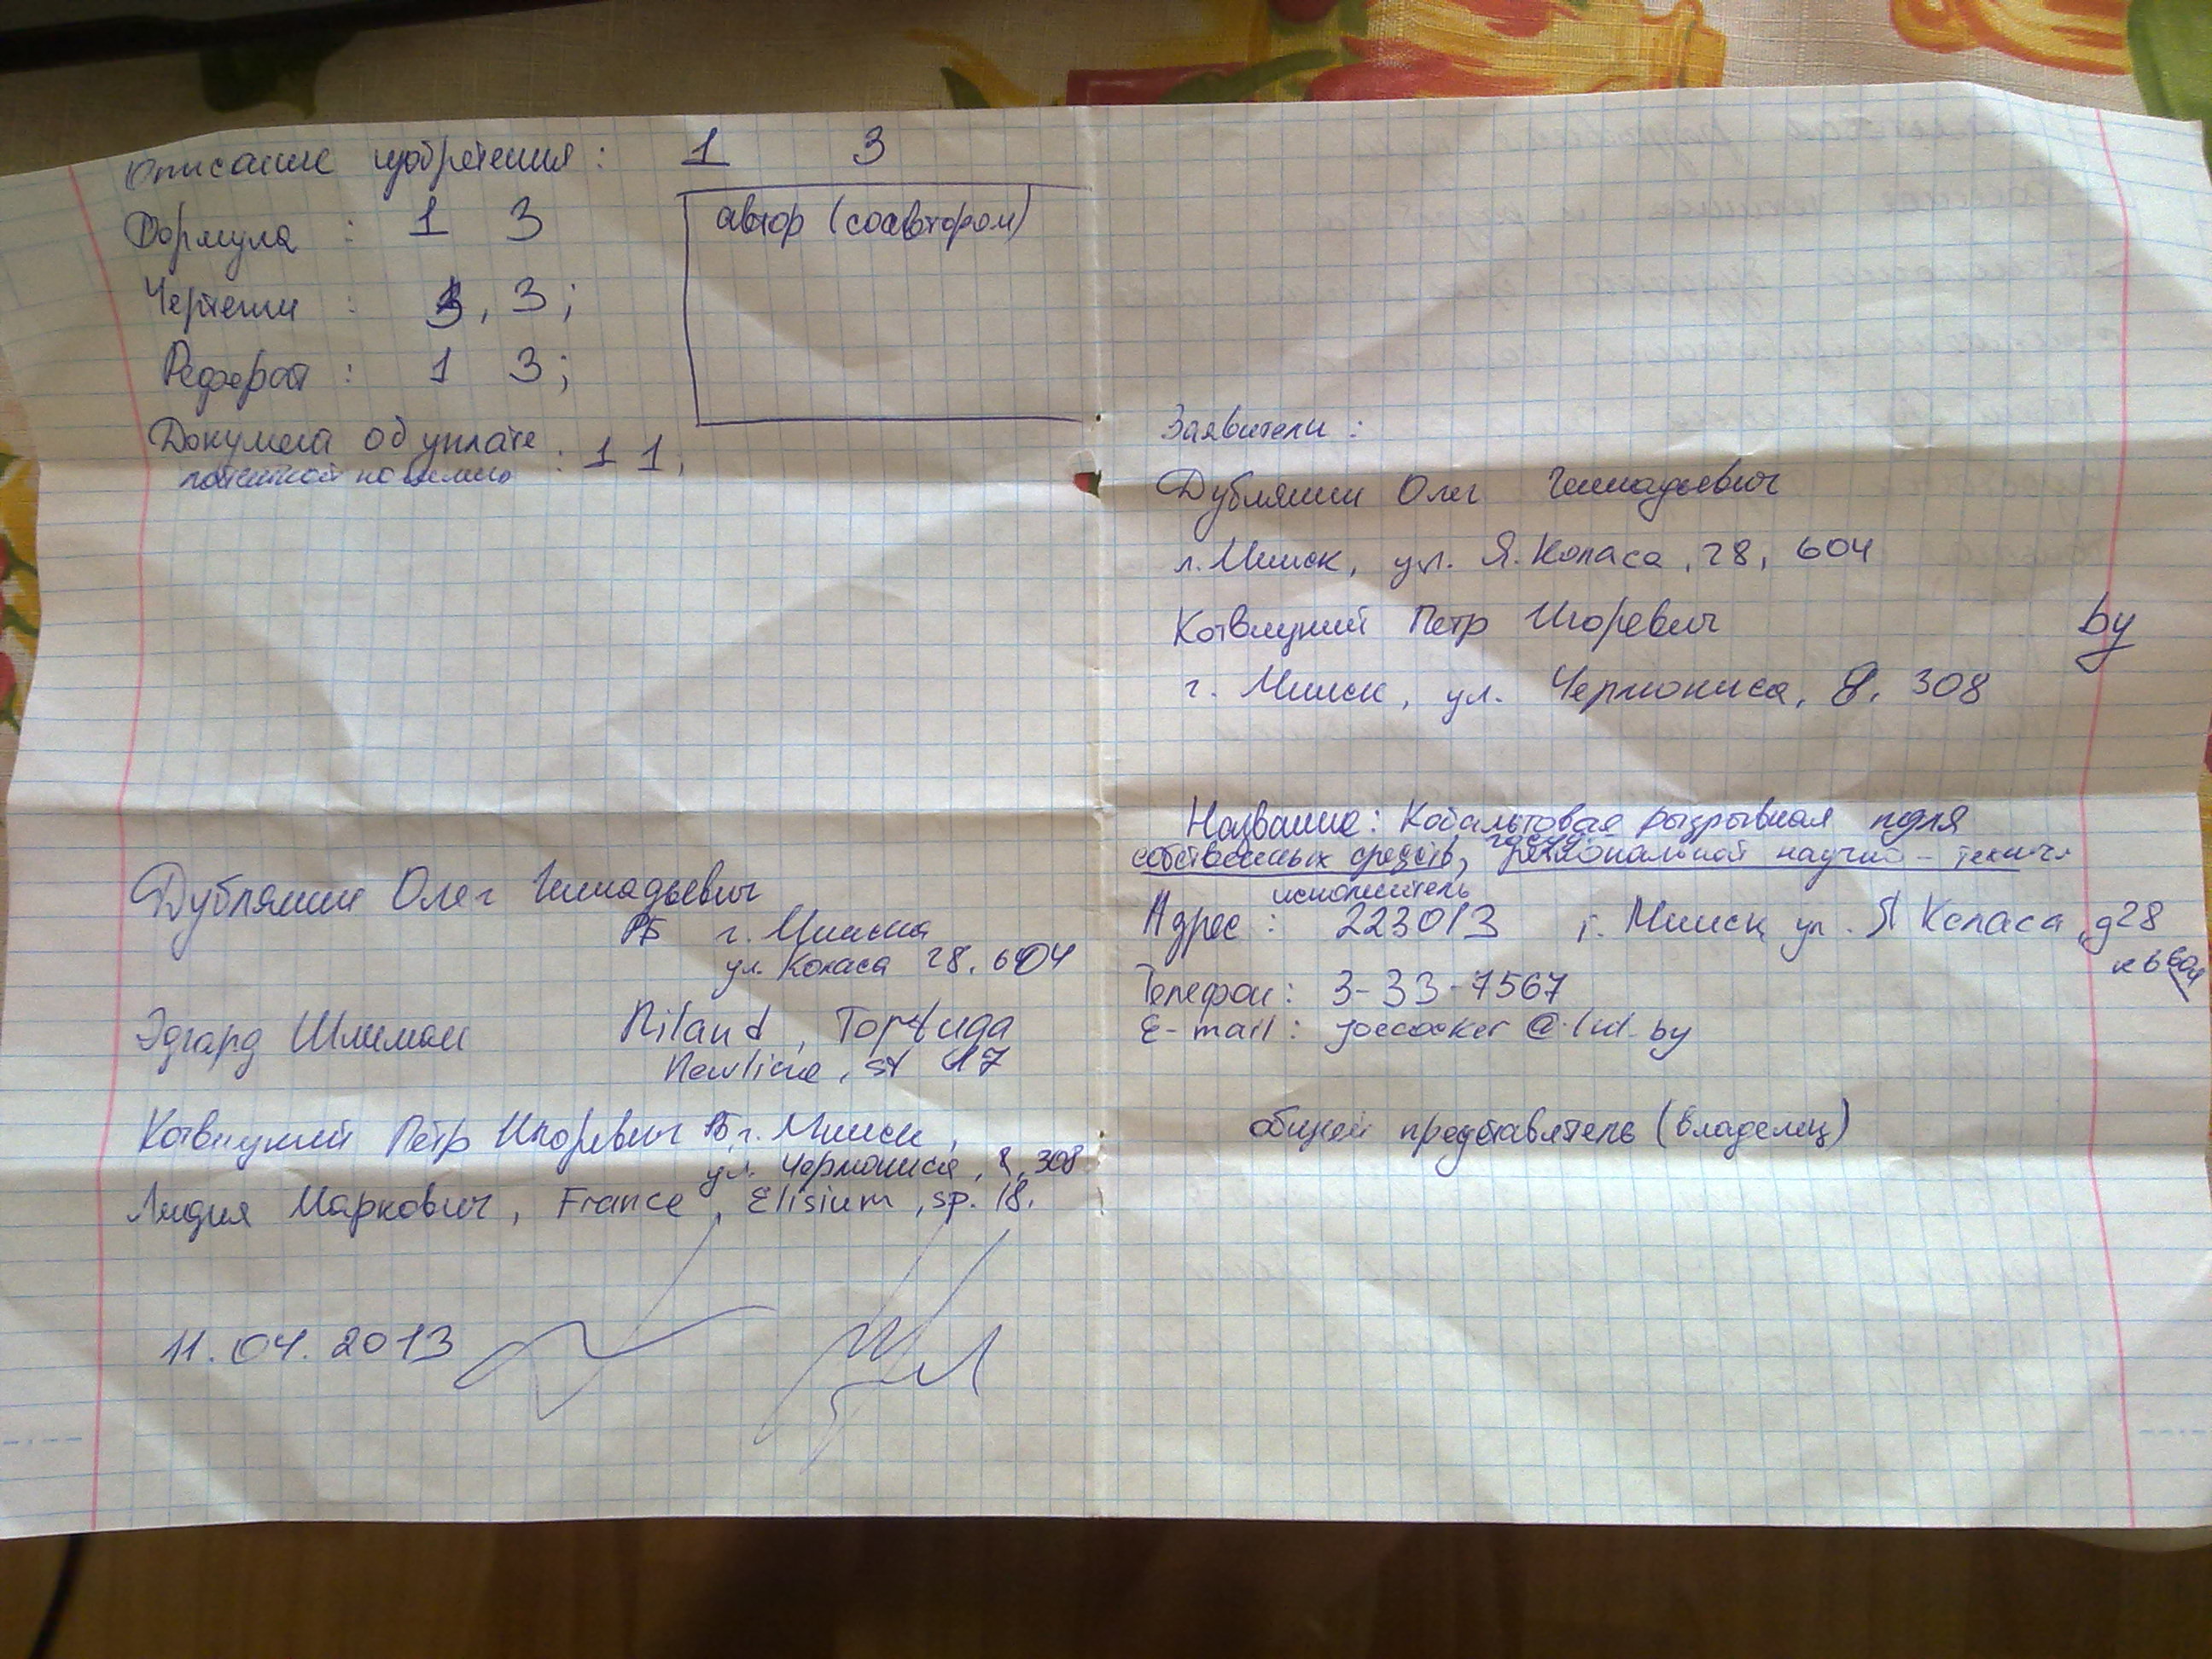 Описание изобретения: 1 3
Формула : 1 3
Чертежи : 3, 3;
Реферат : 1 3;
Документ об уплате : 1 1,
патентной пошлины
автор (соавтором)
Дублянин Олег Геннадьевич
РБ г. Минск
ул. Коласа 28. 604
Эдгард Шлиман Niland, Тортуга
Newline, st 17
Котвицкий Пётр Игоревич РБ г. Минск,
ул. Чернописа, 8, 308
Лидия Маркович, France, Elisium, sp. 18.
11.04.2013
Заявители:
Дублянин Олег Геннадьевич
г. Минск, ул. Я. Коласа, 28, 604
Котвицкий Петр Игоревич by
г. Минск, ул. Чернописа, 8. 308
Название: Кобальтовая разрывная пуля
собственных средств, региональной научно-технич
исполнитель
Адрес: 223013 г. Минск ул. Я Коласа, д28
кв 604
Телефон: 3-33-7567
E-mail: joecocker @ tut.by
общий представитель (владелец)